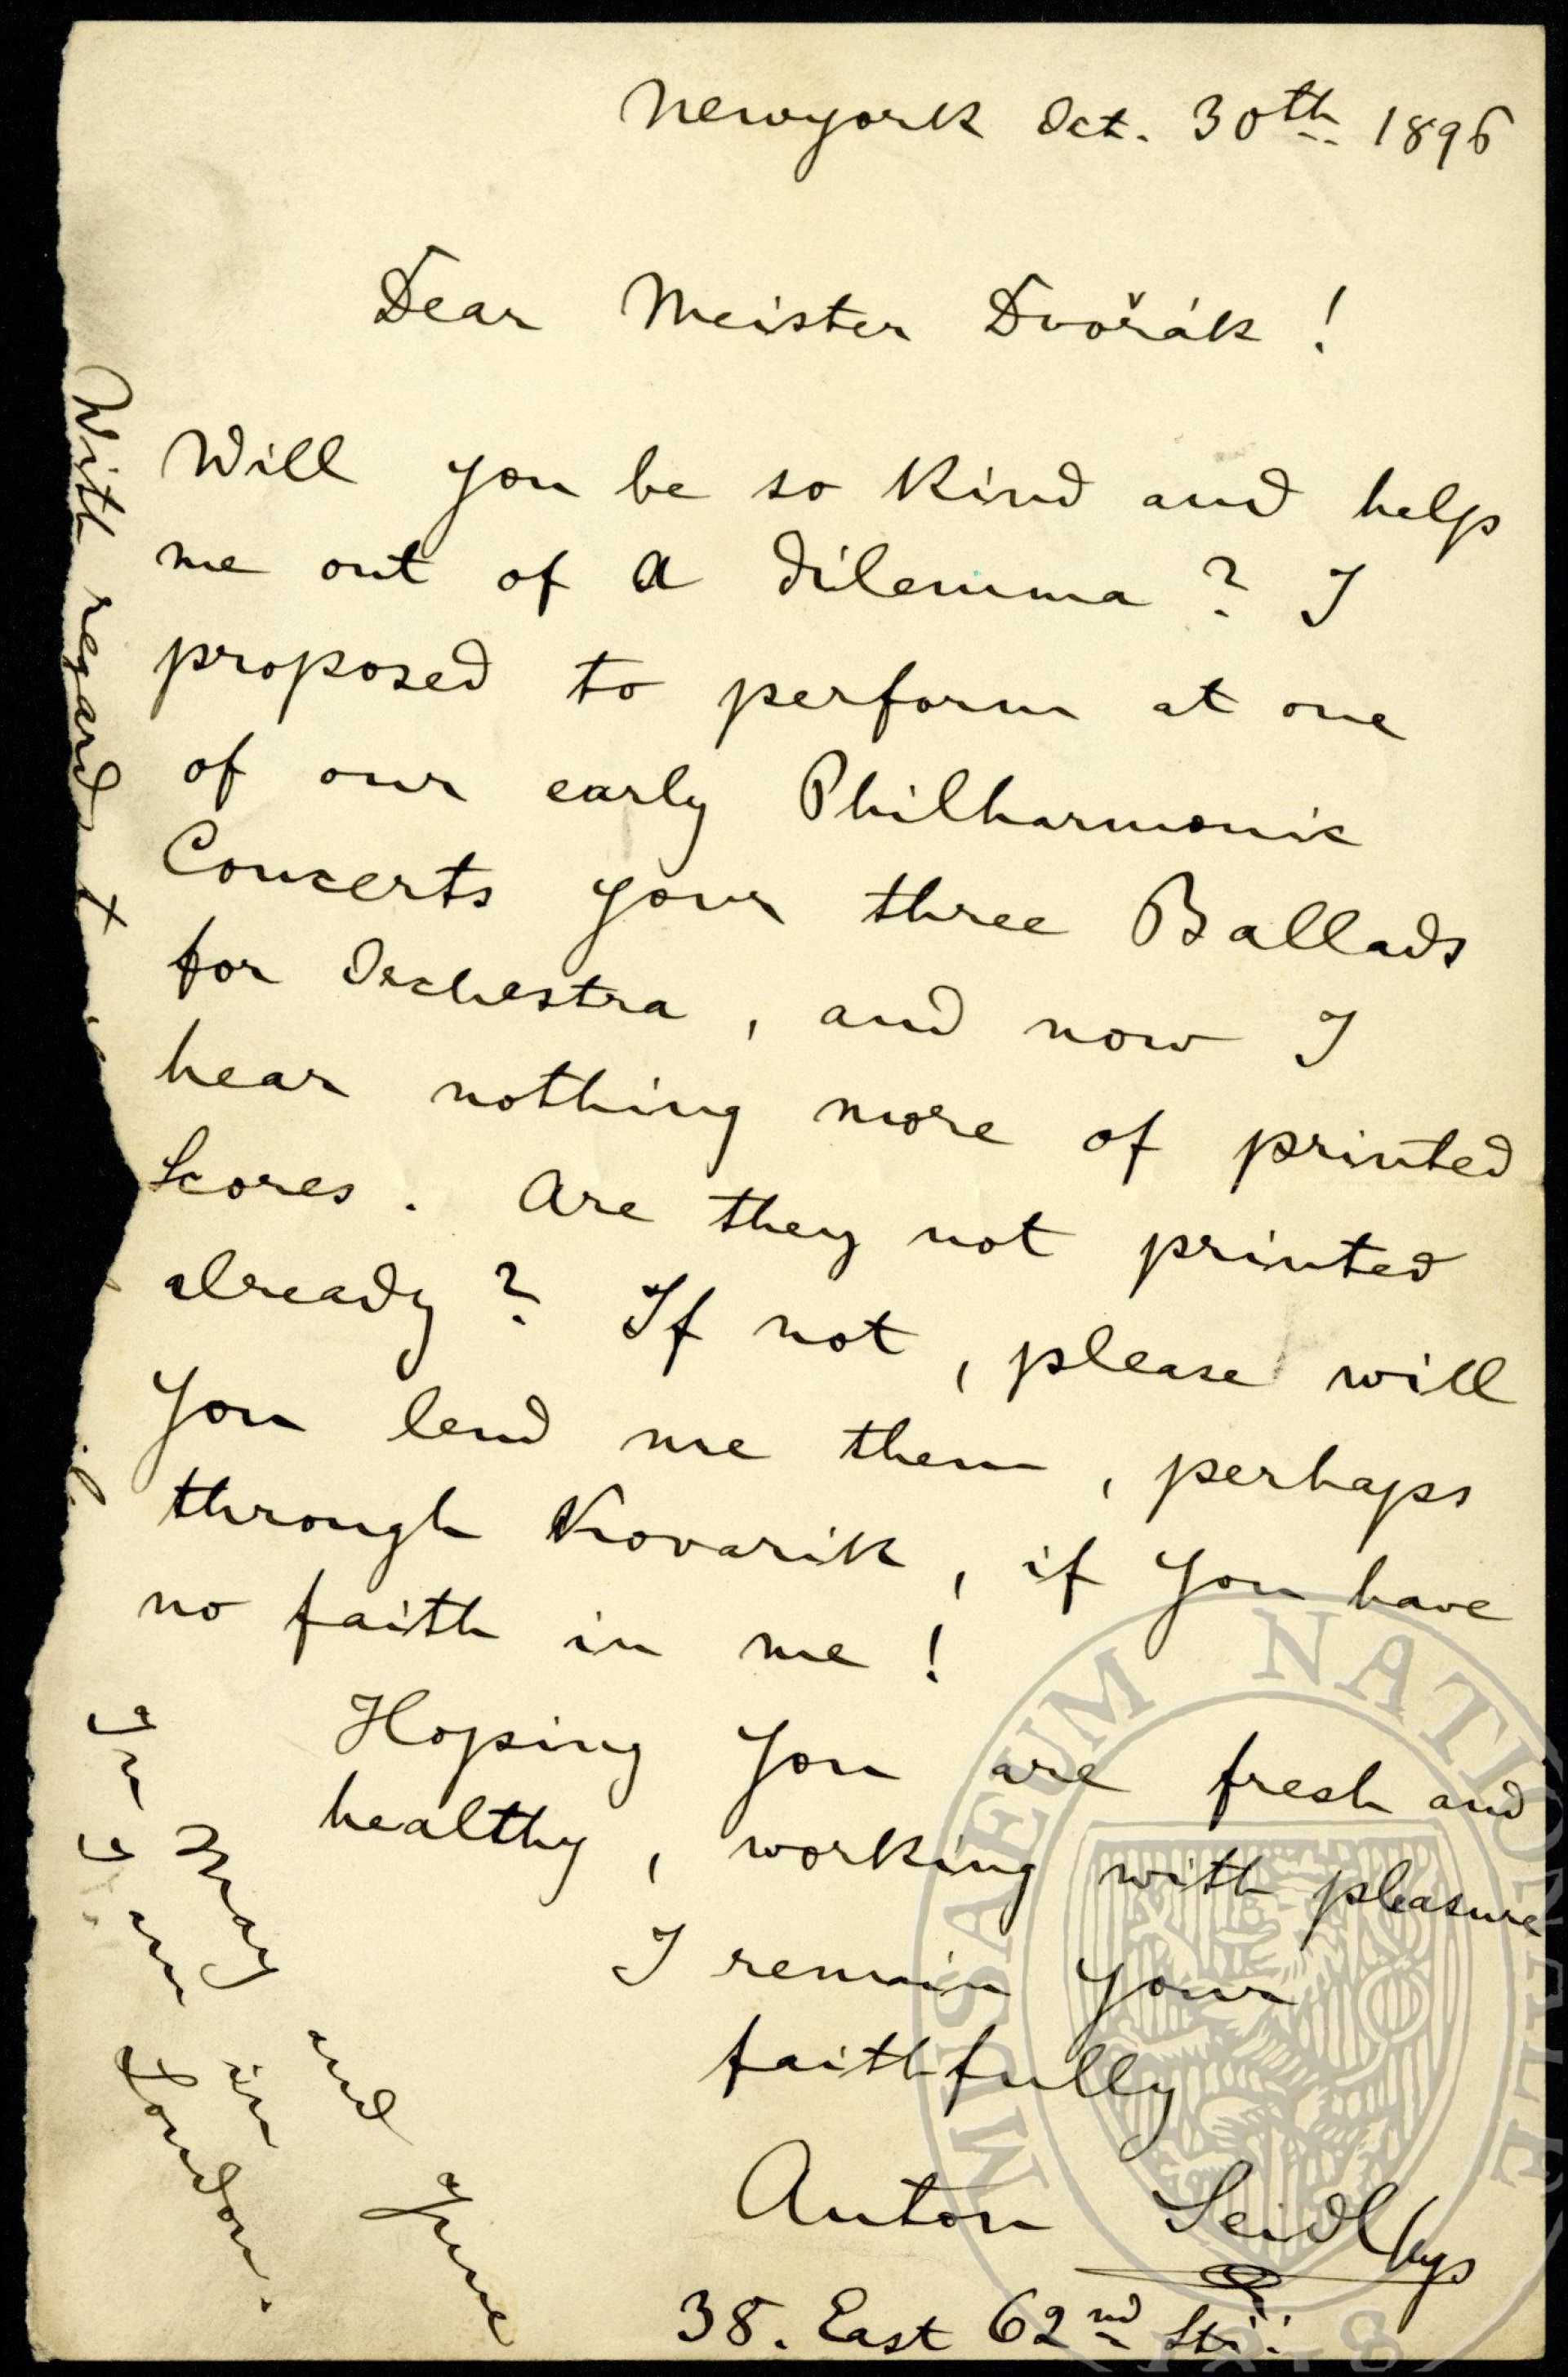 Newyork Oct. 30th 1896
Dear Meister Dvořák !
Will you be so kind and help
me out of a dilemma ? I
proposed to perform at one
of our early Philharmonic
Concerts your three Ballads
for Orchestra , and now I
hear nothing more of printed
Scores . Are they not printed
already ? If not , please will
you lend me them , perhaps
through Kovarik , if you have
no faith in me !
Hoping you are fresh and
healthy , working with pleasure
I remain your
faithfully
Anton Seidl
38. East 62nd Str.
With regards
In May and June
I am in
London .
MUSAEUM NATIONALE